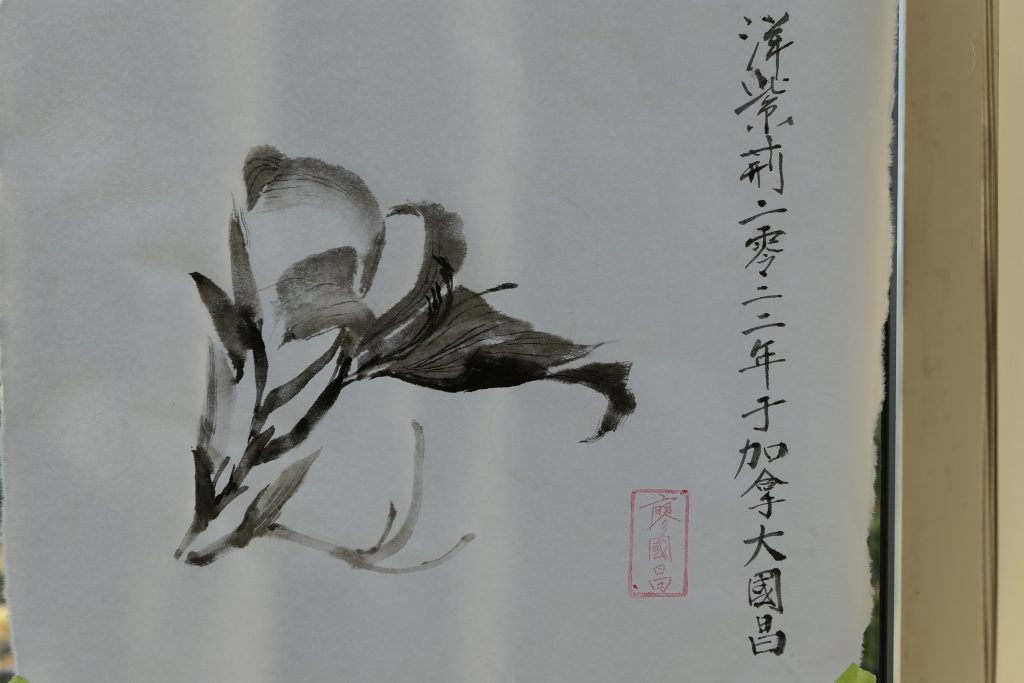 洋紫荊二零二二年于加拿大國昌
廖國昌